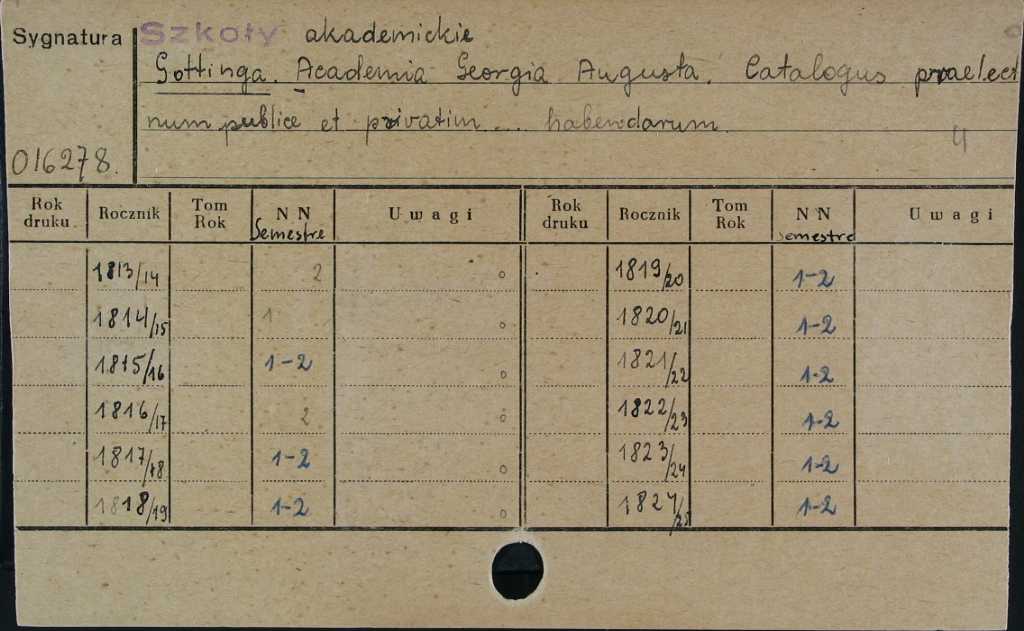 Sygnatura Szkoły akademickie
Gottinga. Academia Georgia Augusta. Catalogus praelect
num publice et privatim .... habendarum.
016278. 4
Rok druku Rocznik Tom Rok NN Semestre Uwagi Rok druku Rocznik Tom Rok NN Semestre Uwagi
1813/14 2 1819/20 1-2
1814/15 1 1820/21 1-2
1815/16 1-2 1821/22 1-2
1816/17 2 1822/23 1-2
1817/18 1-2 1823/24 1-2
1818/19 1-2 1824/25 1-2